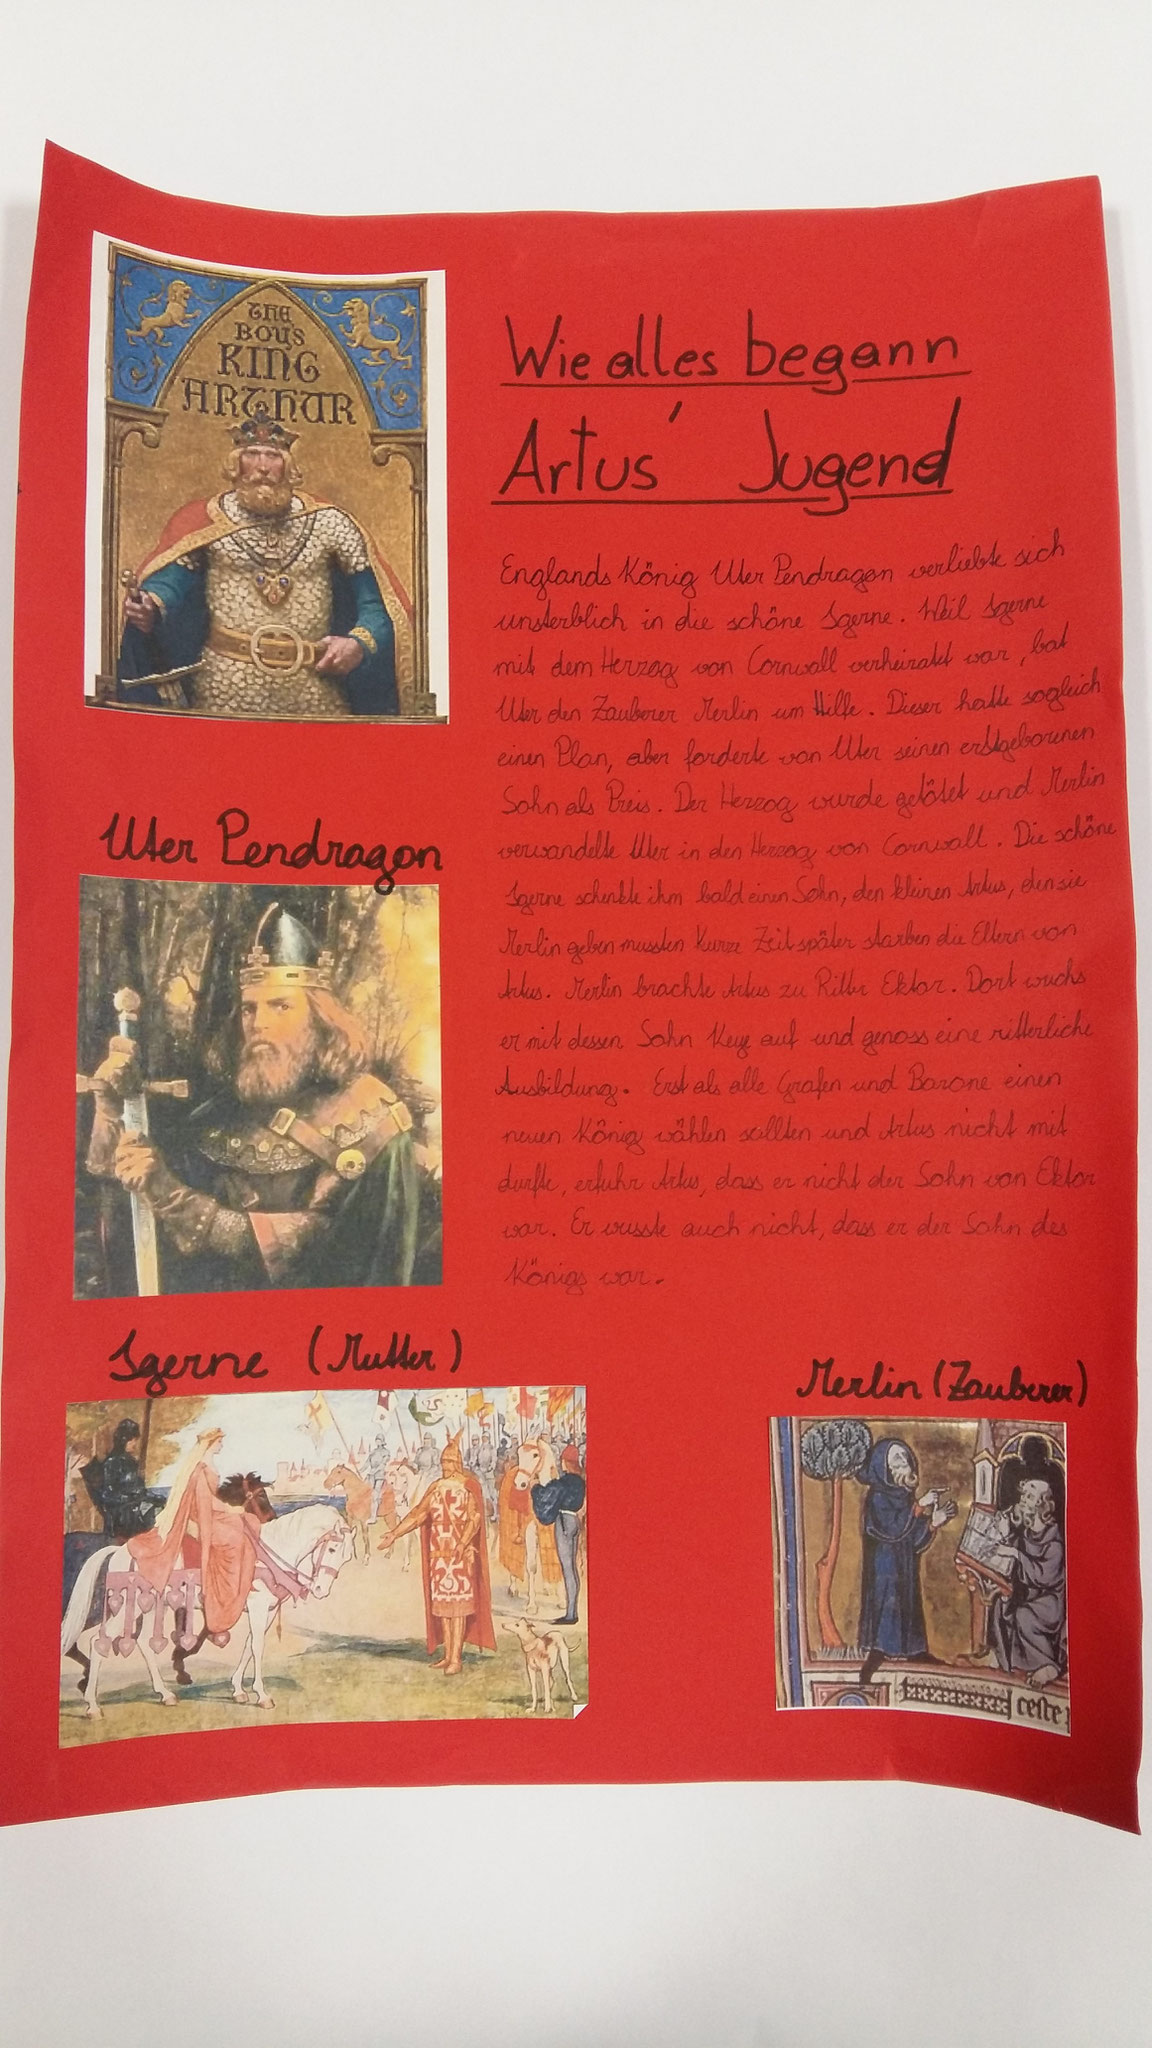 THE
BOYS
KING
ARTHUR
Wie alles begann
Artus' Jugend
Englands König Uter Pendragon verliebte sich
unsterblich in die schöne Igerne. Weil Igerne
mit dem Herzog von Cornwall verheiratet war, bat
Uter den Zauberer Merlin um Hilfe. Dieser hatte sogleich
einen Plan, aber forderte von Uter seinen erstgeborenen
Sohn als Preis. Der Herzog wurde getötet und Merlin
verwandelte Uter in den Herzog von Cornwall. Die schöne
Igerne schenkte ihm bald einen Sohn, den kleinen Artus, den sie
Merlin geben mussten Kurze Zeit später starben die Eltern von
Artus. Merlin brachte Artus zu Ritter Ektor. Dort wuchs
er mit dessen Sohn Keye auf und genoss eine ritterliche
Ausbildung. Erst als alle Grafen und Barone einen
neuen König wählen sollten und Artus nicht mit
durfte, erfuhr Artus, dass er nicht der Sohn von Ektor
war. Er wusste auch nicht, dass er der Sohn des
Königs war.
Uter Pendragon
Igerne (Mutter)
Merlin (Zauberer)
ceste